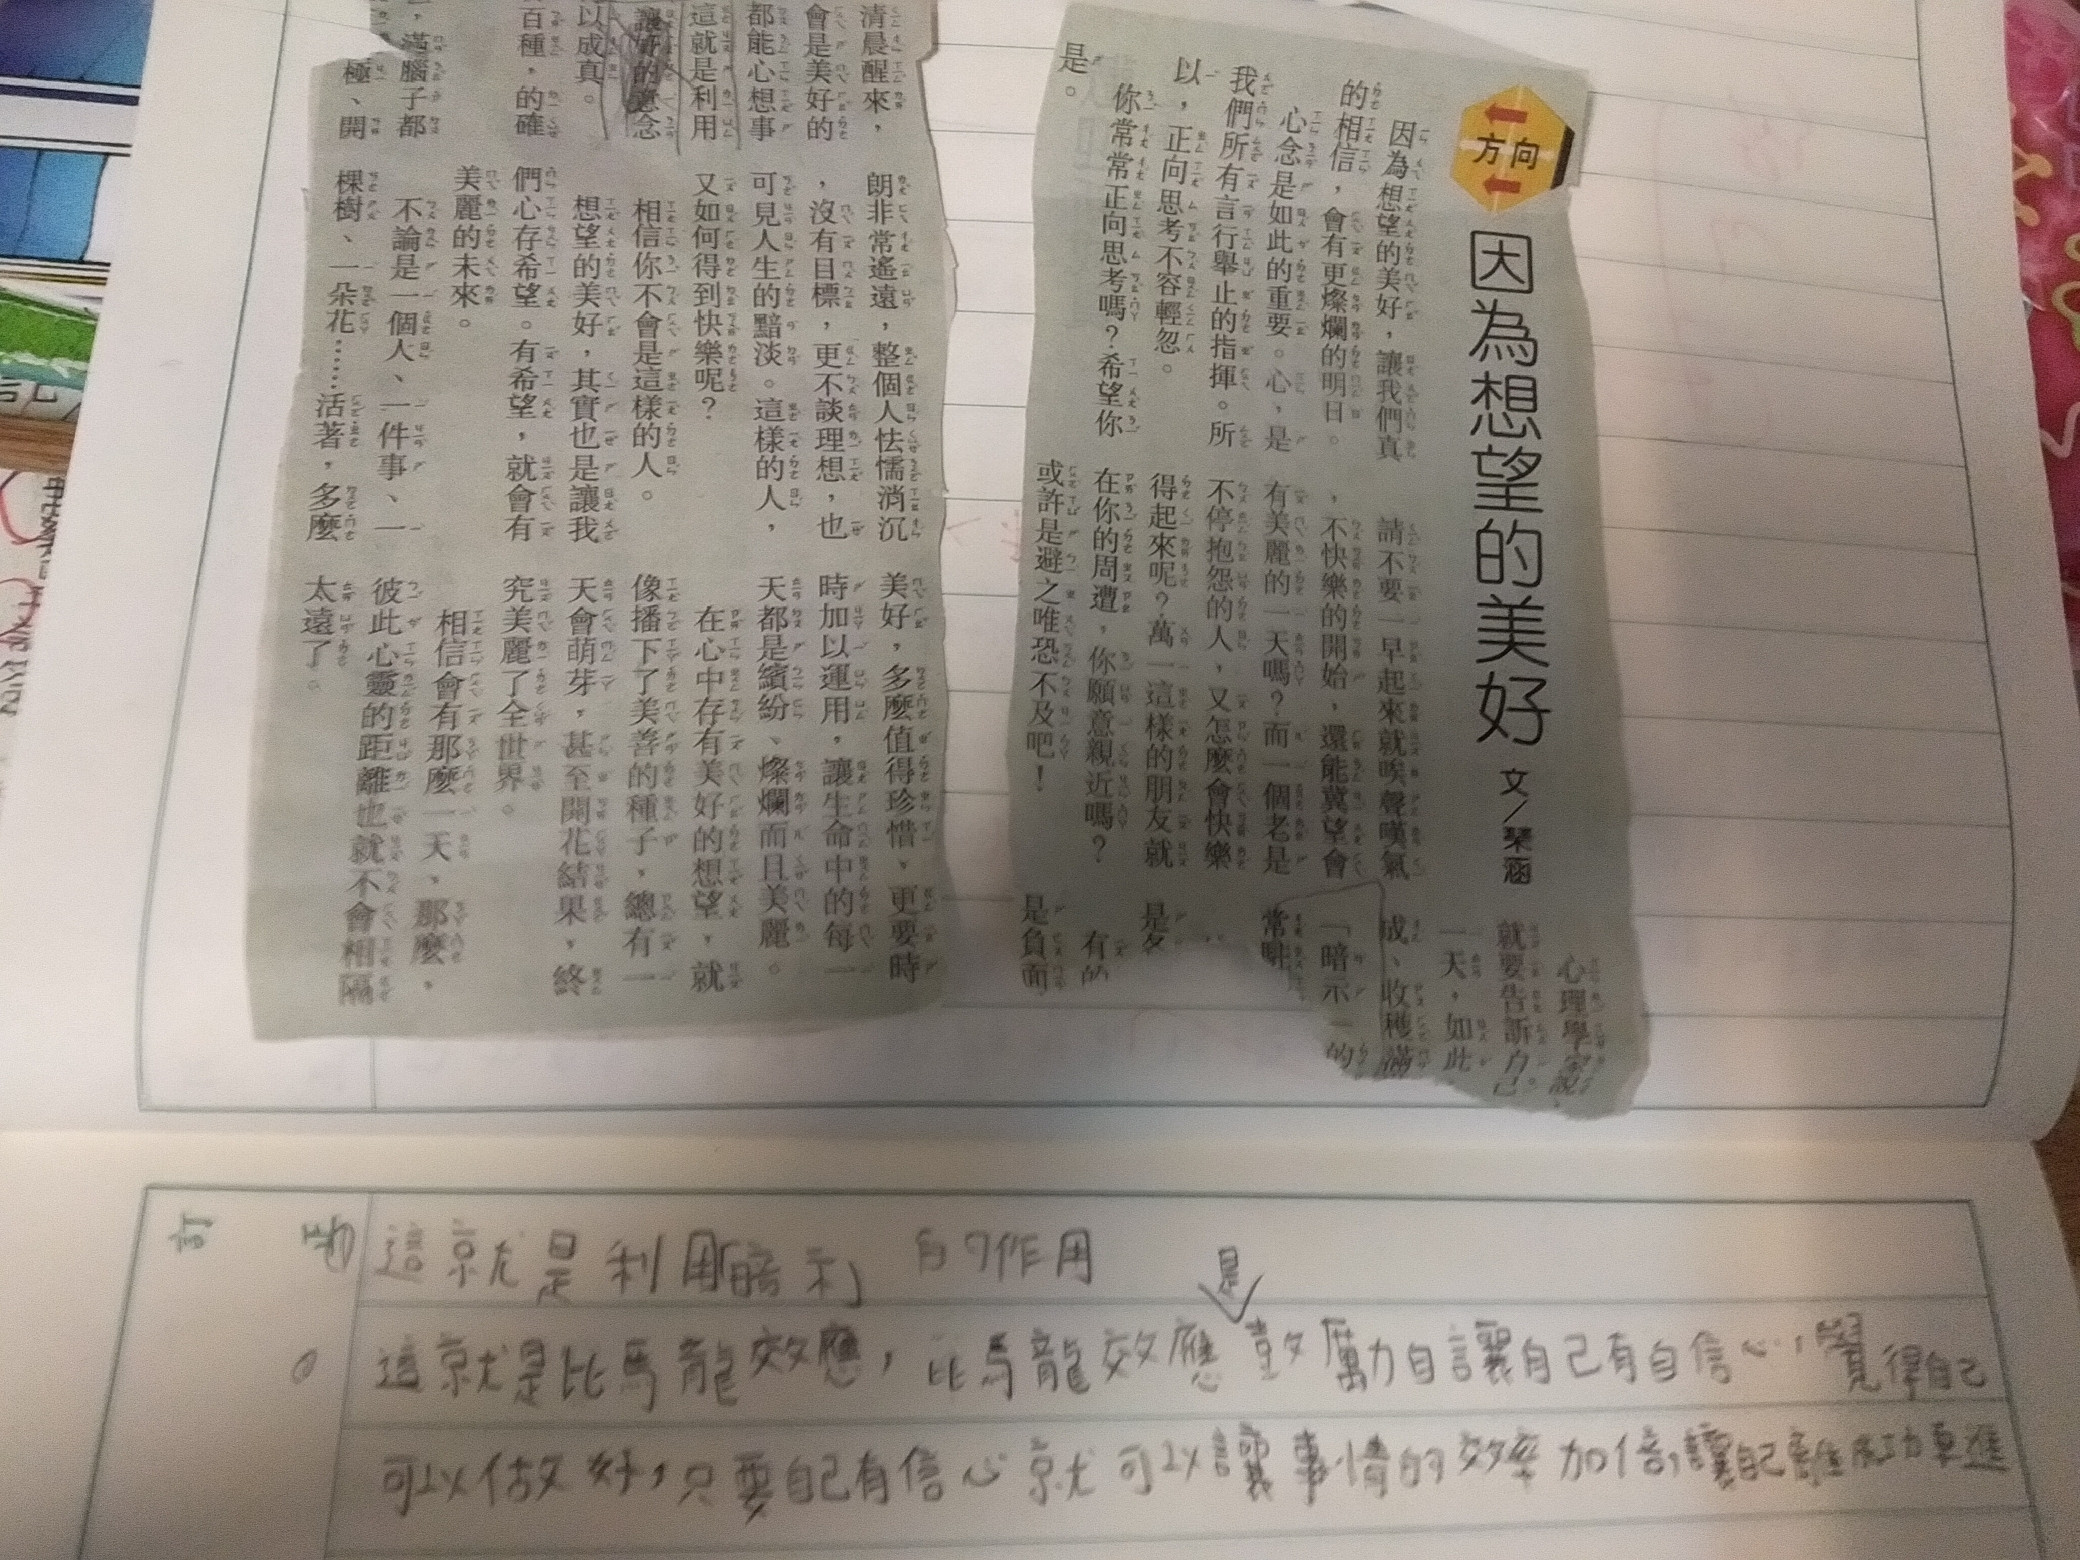 方向
因為想望的美好
文／琹涵
因為想望的美好，讓我們真
的相信，會有更燦爛的明日。
心念是如此的重要。心，是
我們所有言行舉止的指揮。所
以，正向思考不容輕忽。
你常常正向思考嗎？希望你
是。
請不要一早起來就唉聲嘆氣
，不快樂的開始，還能冀望會
有美麗的一天嗎？而一個老是
不停抱怨的人，又怎麼會快樂
得起來呢？萬一這樣的朋友就
在你的周遭，你願意親近嗎？
或許是避之唯恐不及吧！
心理學家說，
就要告訴自己
一天，如此
成、收穫滿
「暗示」的
常
是
有的
是負面
清晨醒來，
會是美好的
都能心想事
這就是利用
讓好的意念
以成真。
百種，的確
，滿腦子都
極、開
朗非常遙遠，整個人怯懦消沉
，沒有目標，更不談理想，也
可見人生的黯淡。這樣的人，
又如何得到快樂呢？
相信你不會是這樣的人。
想望的美好，其實也是讓我
們心存希望。有希望，就會有
美麗的未來。
不論是一個人、一件事、一
棵樹、一朵花……活著，多麼
美好，多麼值得珍惜。更要時
時加以運用，讓生命中的每一
天都是繽紛、燦爛而且美麗。
在心中存有美好的想望，就
像播下了美善的種子，總有一
天會萌芽，甚至開花結果，終
究美麗了全世界。
相信會有那麼一天，那麼，
彼此心靈的距離也就不會相隔
太遠了。
訂正
這就是利用「暗示」的作用
是
這就是比馬龍效應，比馬龍效應鼓勵自讓自己有自信心，覺得自己
可以做好，只要自己有信心就可以讓事情的效率加倍，讓自己離成功更進